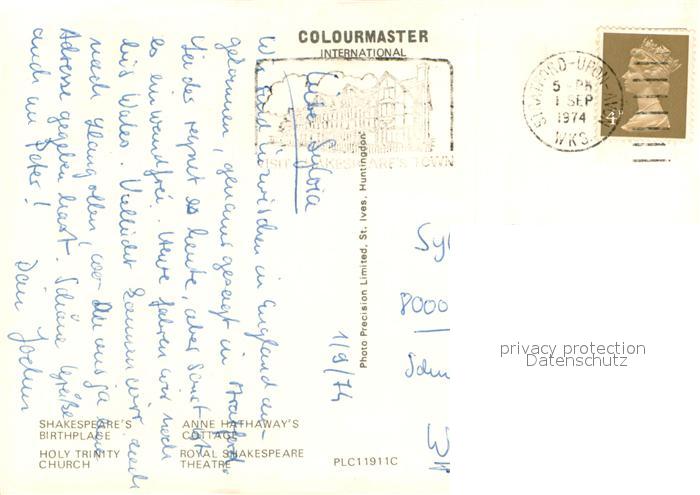 COLOURMASTER
INTERNATIONAL
STRATFORD-UPON-AVON
5 - PM
1 SEP
1974
WKS.
4P
VISIT SHAKESPEARE'S TOWN
1/9/74
Liebe Sylvia
Wir sind inzwischen in England an-
gekommen, genauer gesagt in Stratford.
Leider regnet es heute, aber sonst ist
es einwandfrei. Heute fahren wir noch
bis Wales. Vielleicht kommen wir auch
nach Llangollen, wo Du uns ja die
Adresse gegeben hast. Schöne Grüße
auch an Peter!
Dein Jochen
Photo Precision Limited, St. Ives, Huntingdon
Syl
8000
Schu
privacy protection
Datenschutz
SHAKESPEARE'S
BIRTHPLACE
ANNE HATHAWAY'S
COTTAGE
HOLY TRINITY
CHURCH
ROYAL SHAKESPEARE
THEATRE
PLC11911C